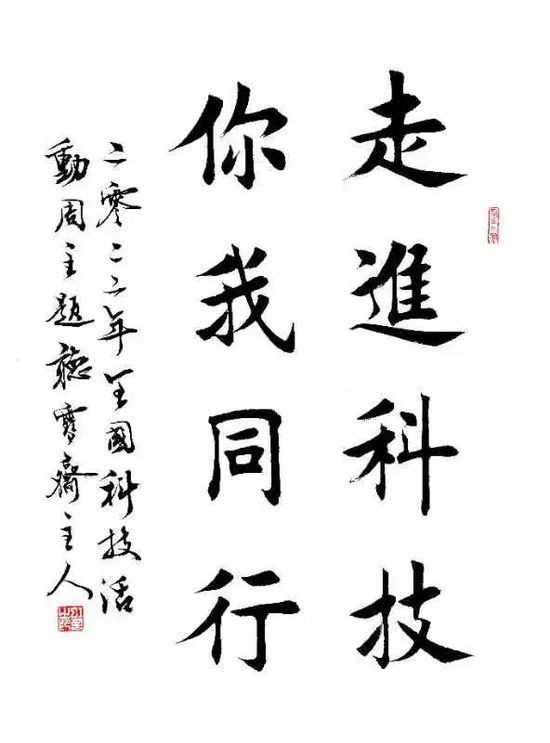 走進科技
你我同行
二零二二年全國科技活
動周主題聽雪齋主人